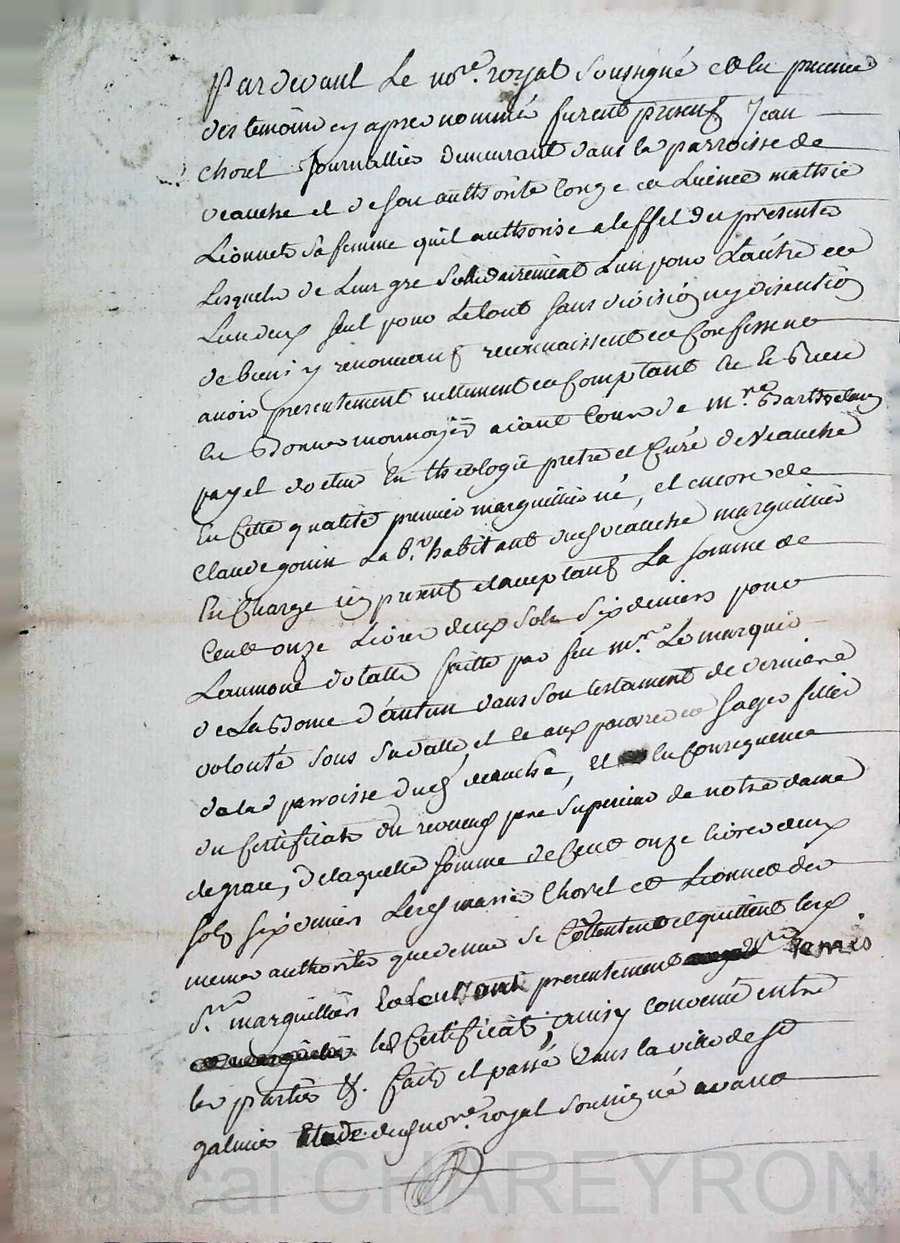 Pardevant Le nore. royal soussigné et en presence
des temoins cy apres nommés furent presens Jean
chorel Journallier demeurant dans la parroisse de
veauche et de son authorité conge et Licence mathie
Lionnet sa femme quil authorise a leffet des presentes
Lesquels de Leur gre solidairement L'un pour L'autre et
L'un deux seul pour Le tout sans division ny discution
de biens y renonceans reconnaissent et confessent
avoir presentement réellement et comptant
En Bonnes monnoyes aiant Cours de mre. Barthelemy
payet docteur En theologie pretre et Curé de Veauche
En Cette qualité premier marguillier né, et encore de
Claude gonin Lab.r habitant dud veauche marguillier
En Charge icy presens et acceptans La somme de
Cent onze Livres deux sols six deniers pour
L'aumone dotalle faitte par feu mr. Le marquis
de La Dome d'autun dans son testament de derniere
volonté sous sa datte, et aux pauvres et sages filles
de lad parroisse dud veauche, et en Consequence
du Certificat du reverend pere Superieur de notre dame
de grace, de laquelle somme de Cent onze livres deux
sols six deniers Lesd mariés Chorel et Lionnet des
memes authorités que dessus se Contentent et quittent lesd
Srs. marguilliers presentement remis
led Certificat, ainsy convenu entre
les parties &. fait et passé dans la ville de st
galmier Etude dud nore. royal soussigné avant
Pascal CHAREYRON